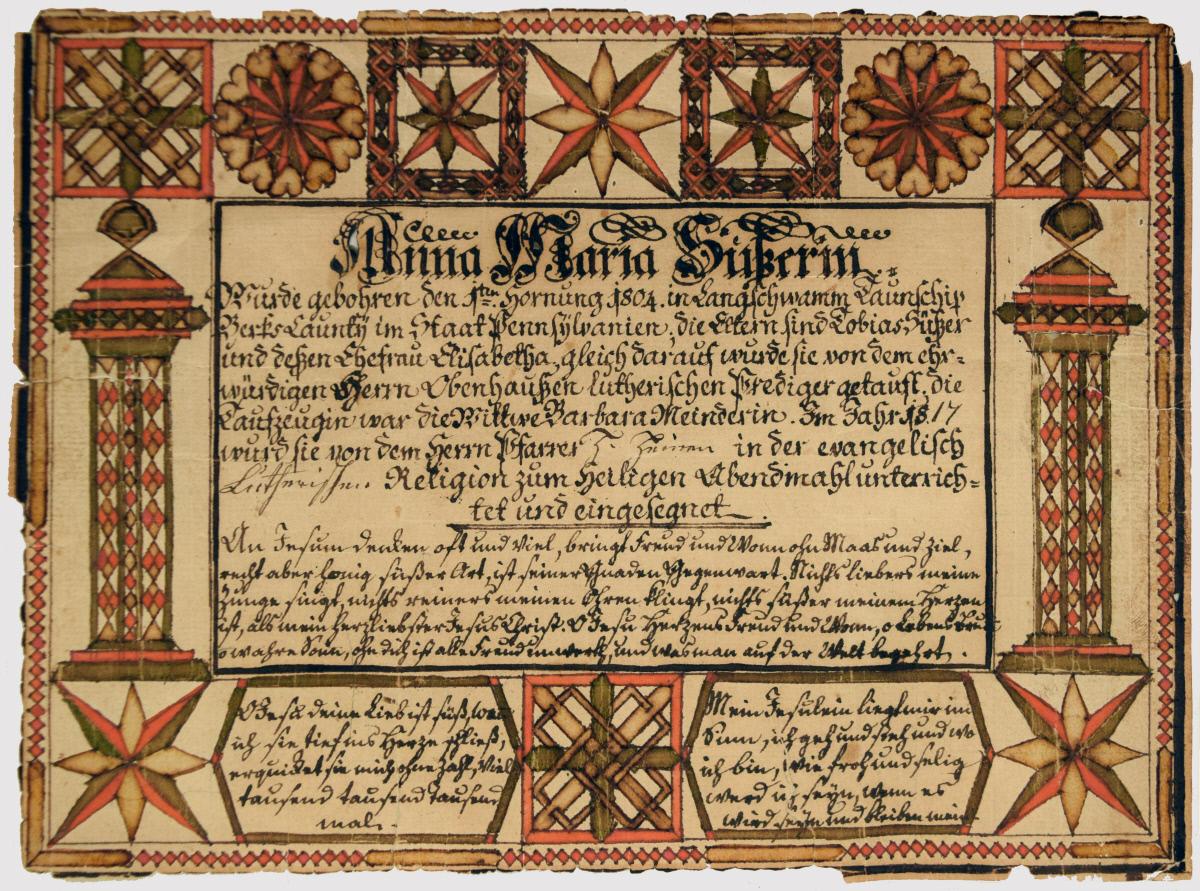 Anna Maria Süßerin
Wurde gebohren den 1ten Hornung 1804. in Langschwamm Taunschip
Berks Caunty im Staat Pennsylvanien, die Eltern sind Tobias Süßer
und deßen Ehefrau Elisabetha, gleich darauf wurde sie von dem ehr-
würdigen Herrn Obenhaußen lutherischen Prediger getauft, die
Taufzeugin war die Wittwe Barbara Meinderin. Im Jahr 1817
wurd sie von dem Herrn Pfarrer in der evangelisch
Lutherischen Religion zum Heiligen Abendmahl unterrich-
tet und eingesegnet.
An Jesum denken oft und viel, bringt Freud und Wonn ohn Maas und Ziel,
recht aber honig süßer Art, ist seiner Gnaden Gegenwart. Nichts liebers meine
Zunge singt, nichts reiners meinen Ohren klingt, nichts süßer meinem Herzen
ist, als mein herzliebster Jesus Christ. O Jesu Herzens Freud und Wonn, o Lebens
o wahre Sonn, ohn dich ist alle Freud unwerth, und was man auf der Welt begehrt.
O Jesu deine Lieb ist süß, wan
ich sie tief ins Herze schließ,
erquicket sie mich ohne Zahl, Viel
tausend tausend tausend
mal.
Mein Jesulein liegt mir im
Sinn, ich geh und steh und wo
ich bin, wie froh und selig
werd ich seyn, wenn es
wird seyn und bleiben mein.